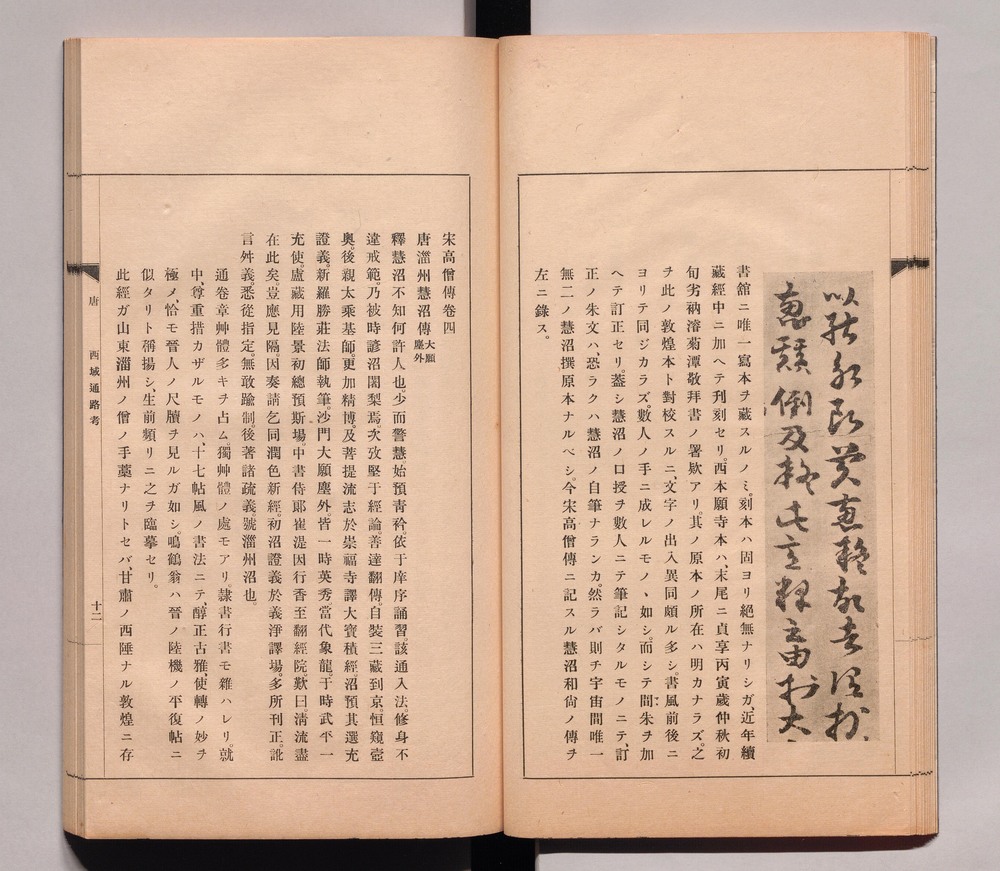 書館ニ唯一寫本ヲ藏スルノミ。刻本ハ固ヨリ絕無ナリシガ、近年續
藏經中ニ加ヘテ刊刻セリ。西本願寺本ハ、末尾ニ貞享丙寅歲仲秋初
旬劣衲濬菊潭敬拜書ノ署欵アリ。其ノ原本ノ所在ハ明カナラズ。之
ヲ此ノ敦煌本ト對校スルニ、文字ノ出入異同頗ル多シ。書風前後ニ
ヨリテ同ジカラズ。數人ノ手ニ成レルモノヽ如シ。而シテ間〻朱ヲ加
ヘテ訂正セリ。蓋シ慧沼ノ口授ヲ數人ニテ筆記シタルモノニテ、訂
正ノ朱文ハ、恐ラクハ慧沼ノ自筆ナランカ。然ラバ則チ宇宙間唯一
無二ノ慧沼撰原本ナルベシ。今宋高僧傳ニ記スル慧沼和尙ノ傳ヲ
左ニ錄ス。
宋高僧傳卷四
唐淄州慧沼傳 大願 塵外
釋慧沼不知何許人也。少而警慧始預靑衿依于庠序誦習。該通入法。修身不
違戒範。乃被時諺沼闍梨焉。次攻堅于經論。善達翻傳。自奘三藏到京。恒窺壼
奧。後親太乘基師。更加精博。及菩提流志於崇福寺譯大寶積經。沼預其選充
證義。新羅勝莊法師執筆。沙門大願塵外。皆一時英秀。當代象龍。于時武平一
充使。盧藏用陸景初總預斯場。中書侍郞崔湜因行香至翻經院歎曰。淸流盡
在此矣。豈應見隔。因奏請乞同潤色新經。初沼證義於義淨譯場。多所刊正。訛
言舛義。悉從指定。無敢踰制。後著諸疏義。號淄州沼也。
通卷章艸體多キヲ占ム。獨艸體ノ處モアリ。隸書行書モ雜ハレリ。就
中、尊重措カザルモノハ、十七帖風ノ書法ニテ、醇正古雅、使轉ノ妙ヲ
極メ、恰モ晉人ノ尺牘ヲ見ルガ如シ。鳴鶴翁ハ晉ノ陸機ノ平復帖ニ
似タリト稱揚シ、生前頻リニ之ヲ臨摹セリ。
此經ガ山東淄州ノ僧ノ手藁ナリトセバ、甘肅ノ西陲ナル敦煌ニ存
唐 西域通路考 十二